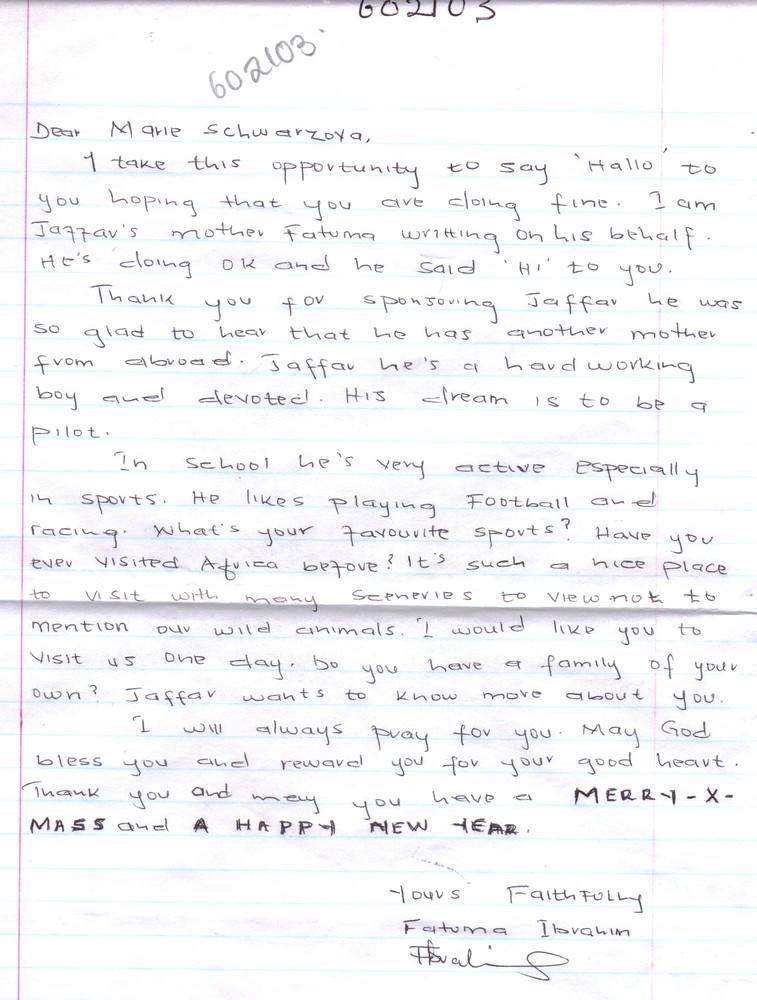 602103
602103.
Dear Marie Schwarzova,
I take this opportunity to say 'Hallo' to
you hoping that you are doing fine. I am
Jaffar's mother Fatuma writting on his behalf.
He's doing OK and he said 'Hi' to you.
Thank you for sponsoring Jaffar he was
so glad to hear that he has another mother
from abroad. Jaffar he's a hard working
boy and devoted. His dream is to be a
pilot.
In school he's very active especially
in sports. He likes playing Football and
racing. What's your favourite sports? Have you
ever visited Africa before? It's such a nice place
to visit with many sceneries to view not to
mention our wild animals. I would like you to
visit us one day. Do you have a family of your
own? Jaffar wants to know more about you.
I will always pray for you. May God
bless you and reward you for your good heart.
Thank you and may you have a MERRY-X-
MASS and A HAPPY NEW YEAR.
Yours Faithfully
Fatuma Ibrahim